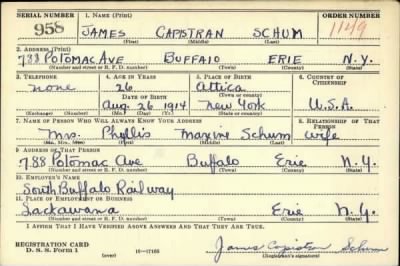 SERIAL NUMBER 1. NAME (Print) ORDER NUMBER
958 JAMES CAPISTRAN SCHUM 1149
(First) (Middle) (Last)
2. ADDRESS (Print)
788 POTOMAC AVE BUFFALO ERIE N.Y.
(Number and street or R. F. D. number) (Town) (County) (State)
3. TELEPHONE 4. AGE IN YEARS 5. PLACE OF BIRTH 6. COUNTRY OF CITIZENSHIP
none 26 Attica
DATE OF BIRTH (Town or county)
Aug. 26 1914 New York U.S.A.
(Exchange) (Number) (Mo.) (Day) (Yr.) (State or country)
7. NAME OF PERSON WHO WILL ALWAYS KNOW YOUR ADDRESS 8. RELATIONSHIP OF THAT PERSON
Mrs. Phyllis Maxine Schum Wife
(Mr., Mrs., Miss) (First) (Middle) (Last)
9. ADDRESS OF THAT PERSON
788 Potomac Ave Buffalo Erie N.Y.
(Number and street or R. F. D. number) (Town) (County) (State)
10. EMPLOYER'S NAME
South Buffalo Railway
11. PLACE OF EMPLOYMENT OR BUSINESS
Lackawana Erie N.Y.
(Number and street or R. F. D. number) (Town) (County) (State)
I AFFIRM THAT I HAVE VERIFIED ABOVE ANSWERS AND THAT THEY ARE TRUE.
REGISTRATION CARD James Capistran Schum
D. S. S. FORM 1 (over) 16—17105 (Registrant's signature)